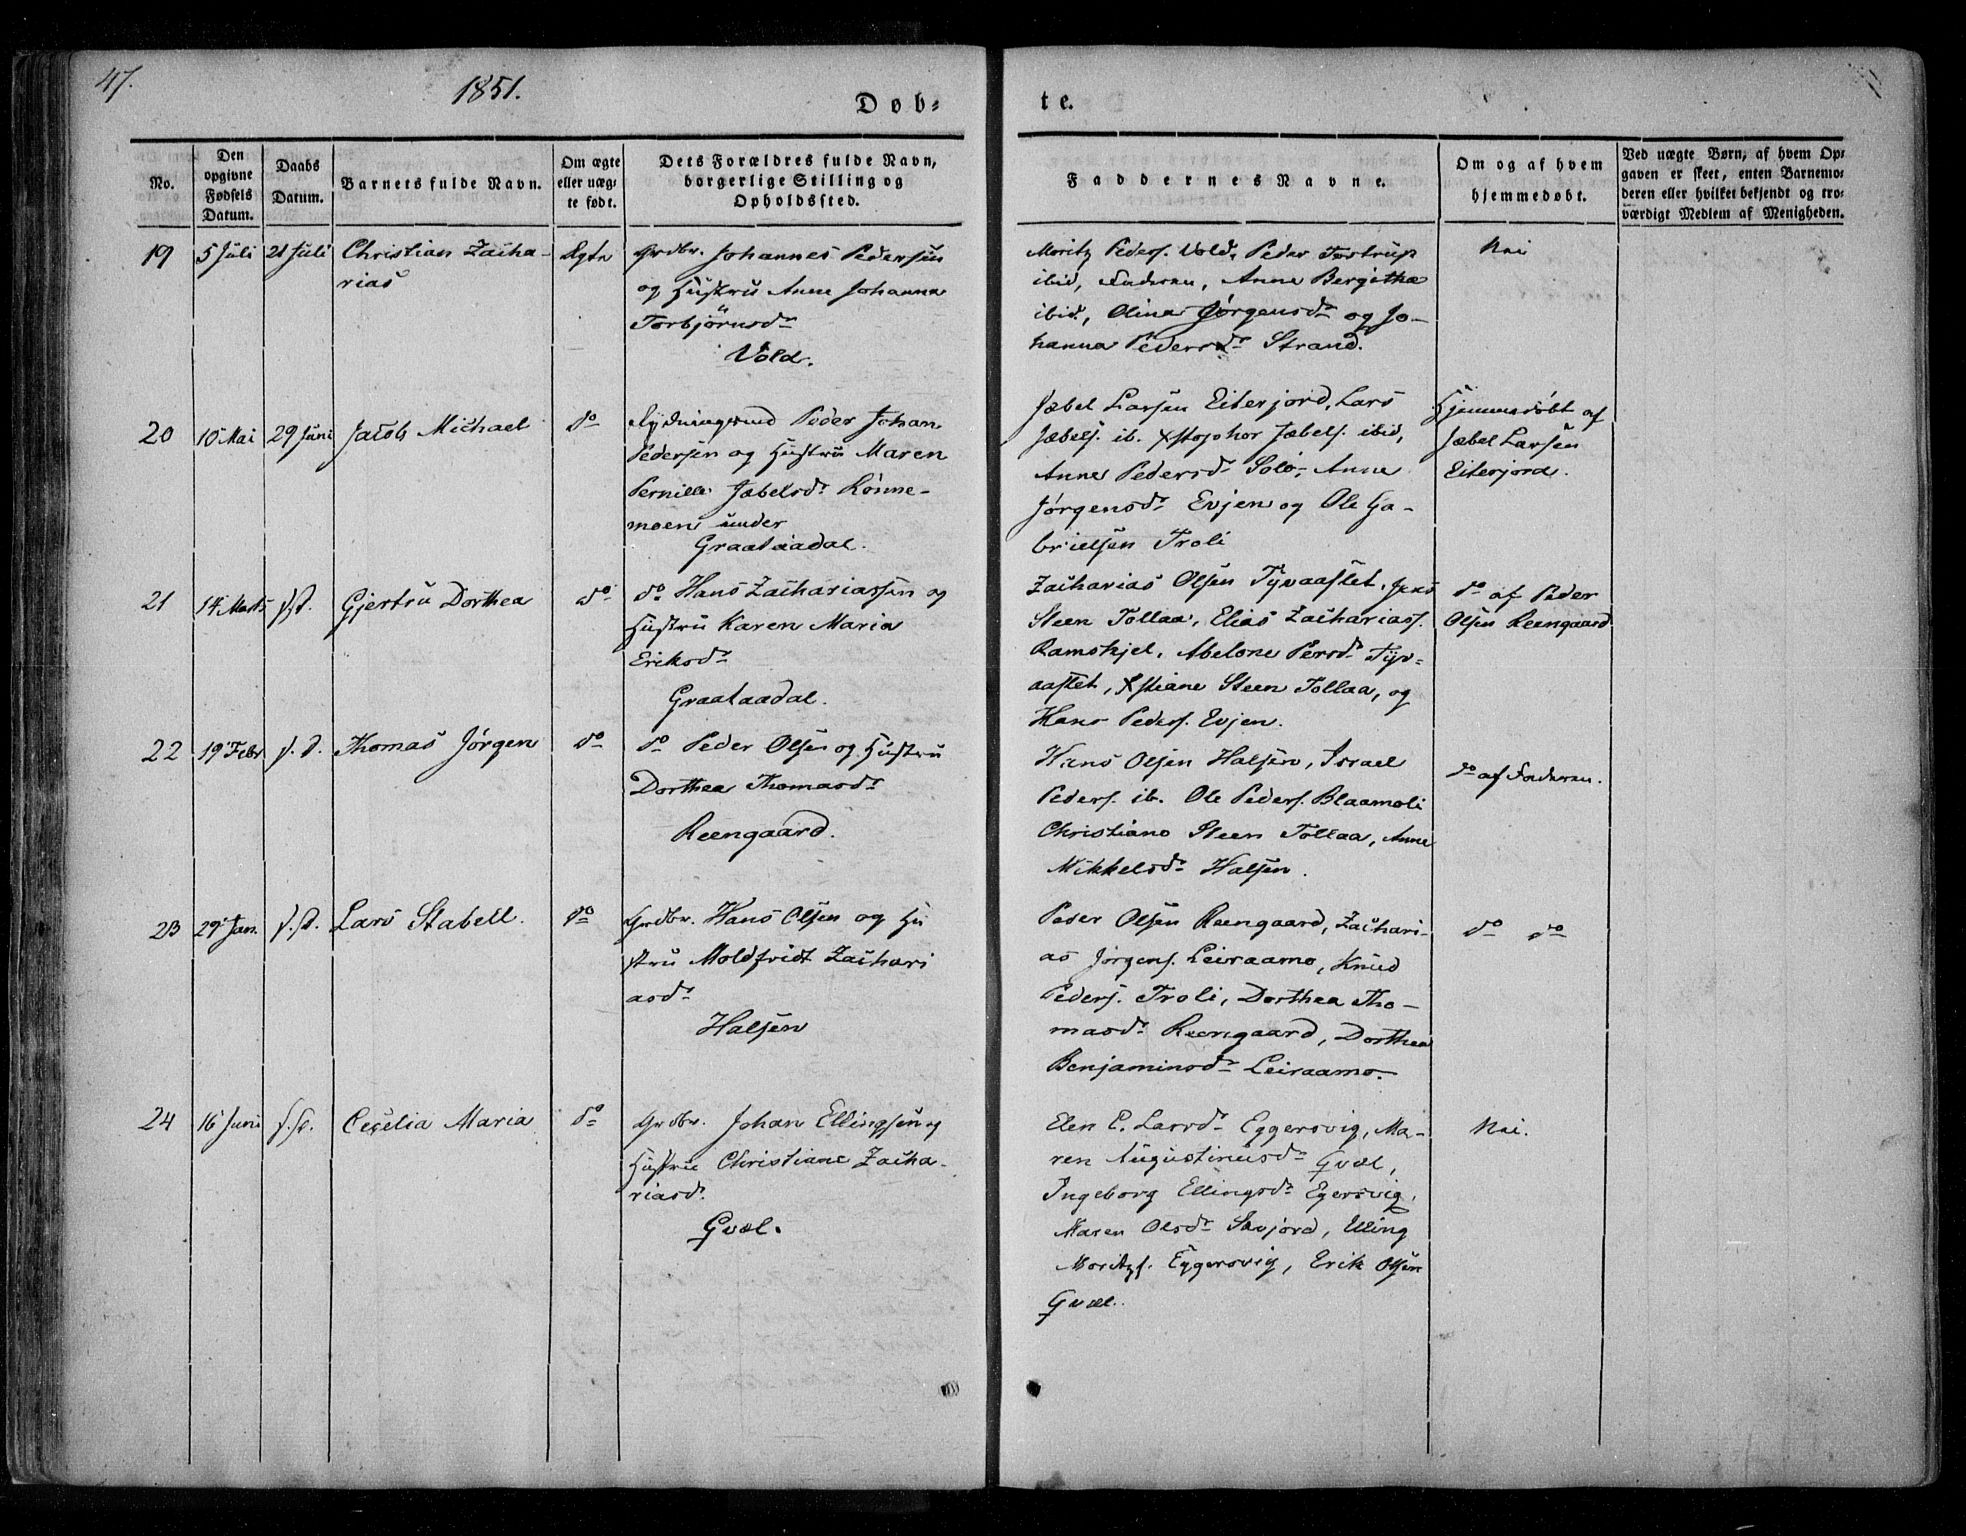 47.
1851.
Døb-
te.
No.
Den opgivne Fødsels Datum.
Daabs Datum.
Barnets fulde Navn.
Om ægte eller uæg-te født.
Dets Forældres fulde Navn, borgerlige Stilling og Opholdssted.
Faddernes Navne.
Om og af hvem hjemmedøbt.
Ved uægte Børn, af hvem Op-gaven er skeet, enten Barnemo-deren eller hvilket bekjendt og tro-værdigt Medlem af Menigheden.
19
5 Juli
21 Juli
Christian Zacha-
rias
Ægte
Grdbr. Johannes Pedersen
og Hustru Anne Johanna
Torbjörnsdr
Vold.
Moritz Peders. Vold, Peder Tostrup
ibid, Faderen, Anne Bergithe
ibid., Olina Jørgensdr og Jo-
hanna Pedersdr Strand.
Nei
20
10 Mai
29 Juni
Jacob Michael
do
Rydningsmd Peder Johan
Pedersen og Hustru Maren
Pernille Jæbelsdr Rönne-
moen under
Graataadal.
Jæbel Larsen Eiterjord, Lars
Jæbels. ib. Xstopher Jæbels. ibid,
Anne Pedersdr Solö, Anne
Jørgensdr Evjen og Ole Ga-
brielsen Troli
Hjemmedöbt af
Jæbel Larsen
Eiterjord.
21
14 Marts
s.d.
Gjertru Dorthea
do
do Hans Zachariassen og
Hustru Karen Maria
Eriksdr
Graataadal.
Zacharias Olsen Tyvaaflet, Jens
Steen Tollaa, Elias Zacharias.
Ramskjel, Abelone Persdr Tyv-
aaflet, Xstiane Steen Tollaa, og
Hans Peders. Evjen.
do af Peder
Olsen Reengaard
22
19 Febr
s. d.
Thomas Jørgen
do
do Peder Olsen og Hustru
Dorthea Thomasdr
Reengaard.
Hans Olsen Halsen, Israel
Peders. ib. Ole Peders. Blaamoli
Christiane Steen Tollaa, Anne
Mikkelsdr Halsen.
do af Faderen.
23
29 Jan.
s.d.
Lars Stabell.
do
Grdbr. Hans Olsen og Hu
stru Moldfridt Zachari
asdr
Halsen
Peder Olsen Reengaard, Zachari-
as Jørgens. Leiraamo, Knud
Peders. Troli, Dorthea Tho-
masdr Reengaard, Dorthea
Benjaminsdr Leiraamo.
do do
24
16 Juni
s.d.
Cecelia Maria
do
Grdbr. Johan Ellingsen og
Hustru Christiane Zacha-
riasdr
Gvæl.
Elen E. Larsdr Eggersvig, Ma-
ren Augustinusdr Gvæl,
Ingeborg Ellingsdr Egersvig,
Maren Olsdr Savjord, Elling
Moritzs. Eggersvig, Erik Olsen
Gvæl.
Nei.